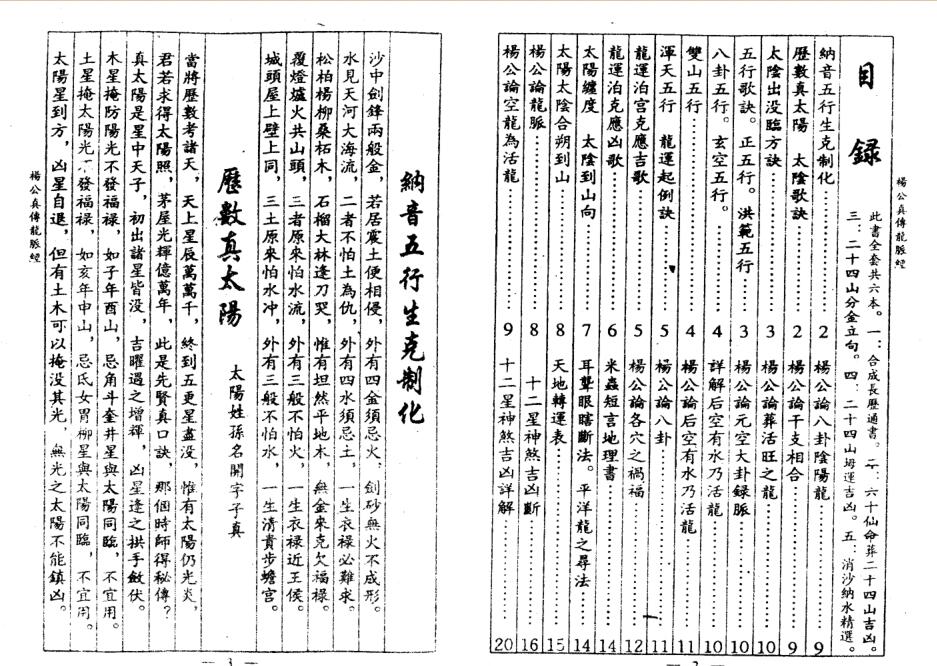 楊公真傳龍脈經
目錄
此書全套共六本。一：合成長歷通書。二、六十仙命葬二十四山吉凶。
三、二十四山分金立句。四、二十四山坶運吉凶。五、消沙納水精選。
納音五行生克制化 2 楊公論八卦陰陽龍 9
歷數真太陽 太陰歌訣 2 楊公論干支相合 9
太陰出没臨方訣 3 楊公論葬活旺之龍 10
五行歌訣。正五行。洪範五行 3 楊公論元空大卦録脈 10
八卦五行。玄空五行。 4 詳解后空有水乃活龍 10
雙山五行 4 楊公論后空有水乃活龍 11
渾天五行 龍運起例訣 5 楊公論八卦 11
龍運泊宮克應吉歌 5 楊公論各穴之禍福 12
龍運泊克應凶歌 6 米蟲短言地理書 14
太陽纏度 太陰到山向 7 耳聾眼瞎斷法。平洋龍之尋法 14
太陽太陰合朔到山 8 天地轉運表 15
楊公論龍脈 8 十二星神煞吉凶斷 16
楊公論空龍為活龍 9 十二星神煞吉凶詳解 20
— 2 —
納音五行生克制化
沙中劍鋒兩般金，若居震土便相侵，外有四金須忌火，劍砂無火不成形。
水見天河大海流，二者不怕土為仇，外有四水須忌土，一生衣禄必難求。
松柏楊柳桑柘木，石榴大林逢刀哭，惟有坦然平地木，無金來克欠福禄。
覆燈爐火共山頭，三者原來怕水流，外有三般不怕火，一生衣禄近王侯。
城頭屋上壁上同，三土原來怕水冲，外有三般不怕水，一生清貴步蟾宫。
歷數真太陽 太陽姓孫名開字子真
當將歷數考諸天，天上星辰萬萬千，終到五更星盡没，惟有太陽仍光炎，
君若求得太陽照，茅屋光輝億萬年，此是先賢真口訣，那個時師得秘傳？
真太陽是星中天子，初出諸星皆没，吉曜遇之增輝，凶星逢之拱手斂伏。
木星掩防陽光不發福禄，如子年酉山，忌角斗奎井星與太陽同臨，不宜用。
土星掩太陽光不發福禄，如亥年申山，忌氐女胃柳星與太陽同臨，不宜用。
太陽星到方，凶星自退，但有土木可以掩没其光，無光之太陽不能鎮凶。
楊公真傳龍脈經
— 3 —